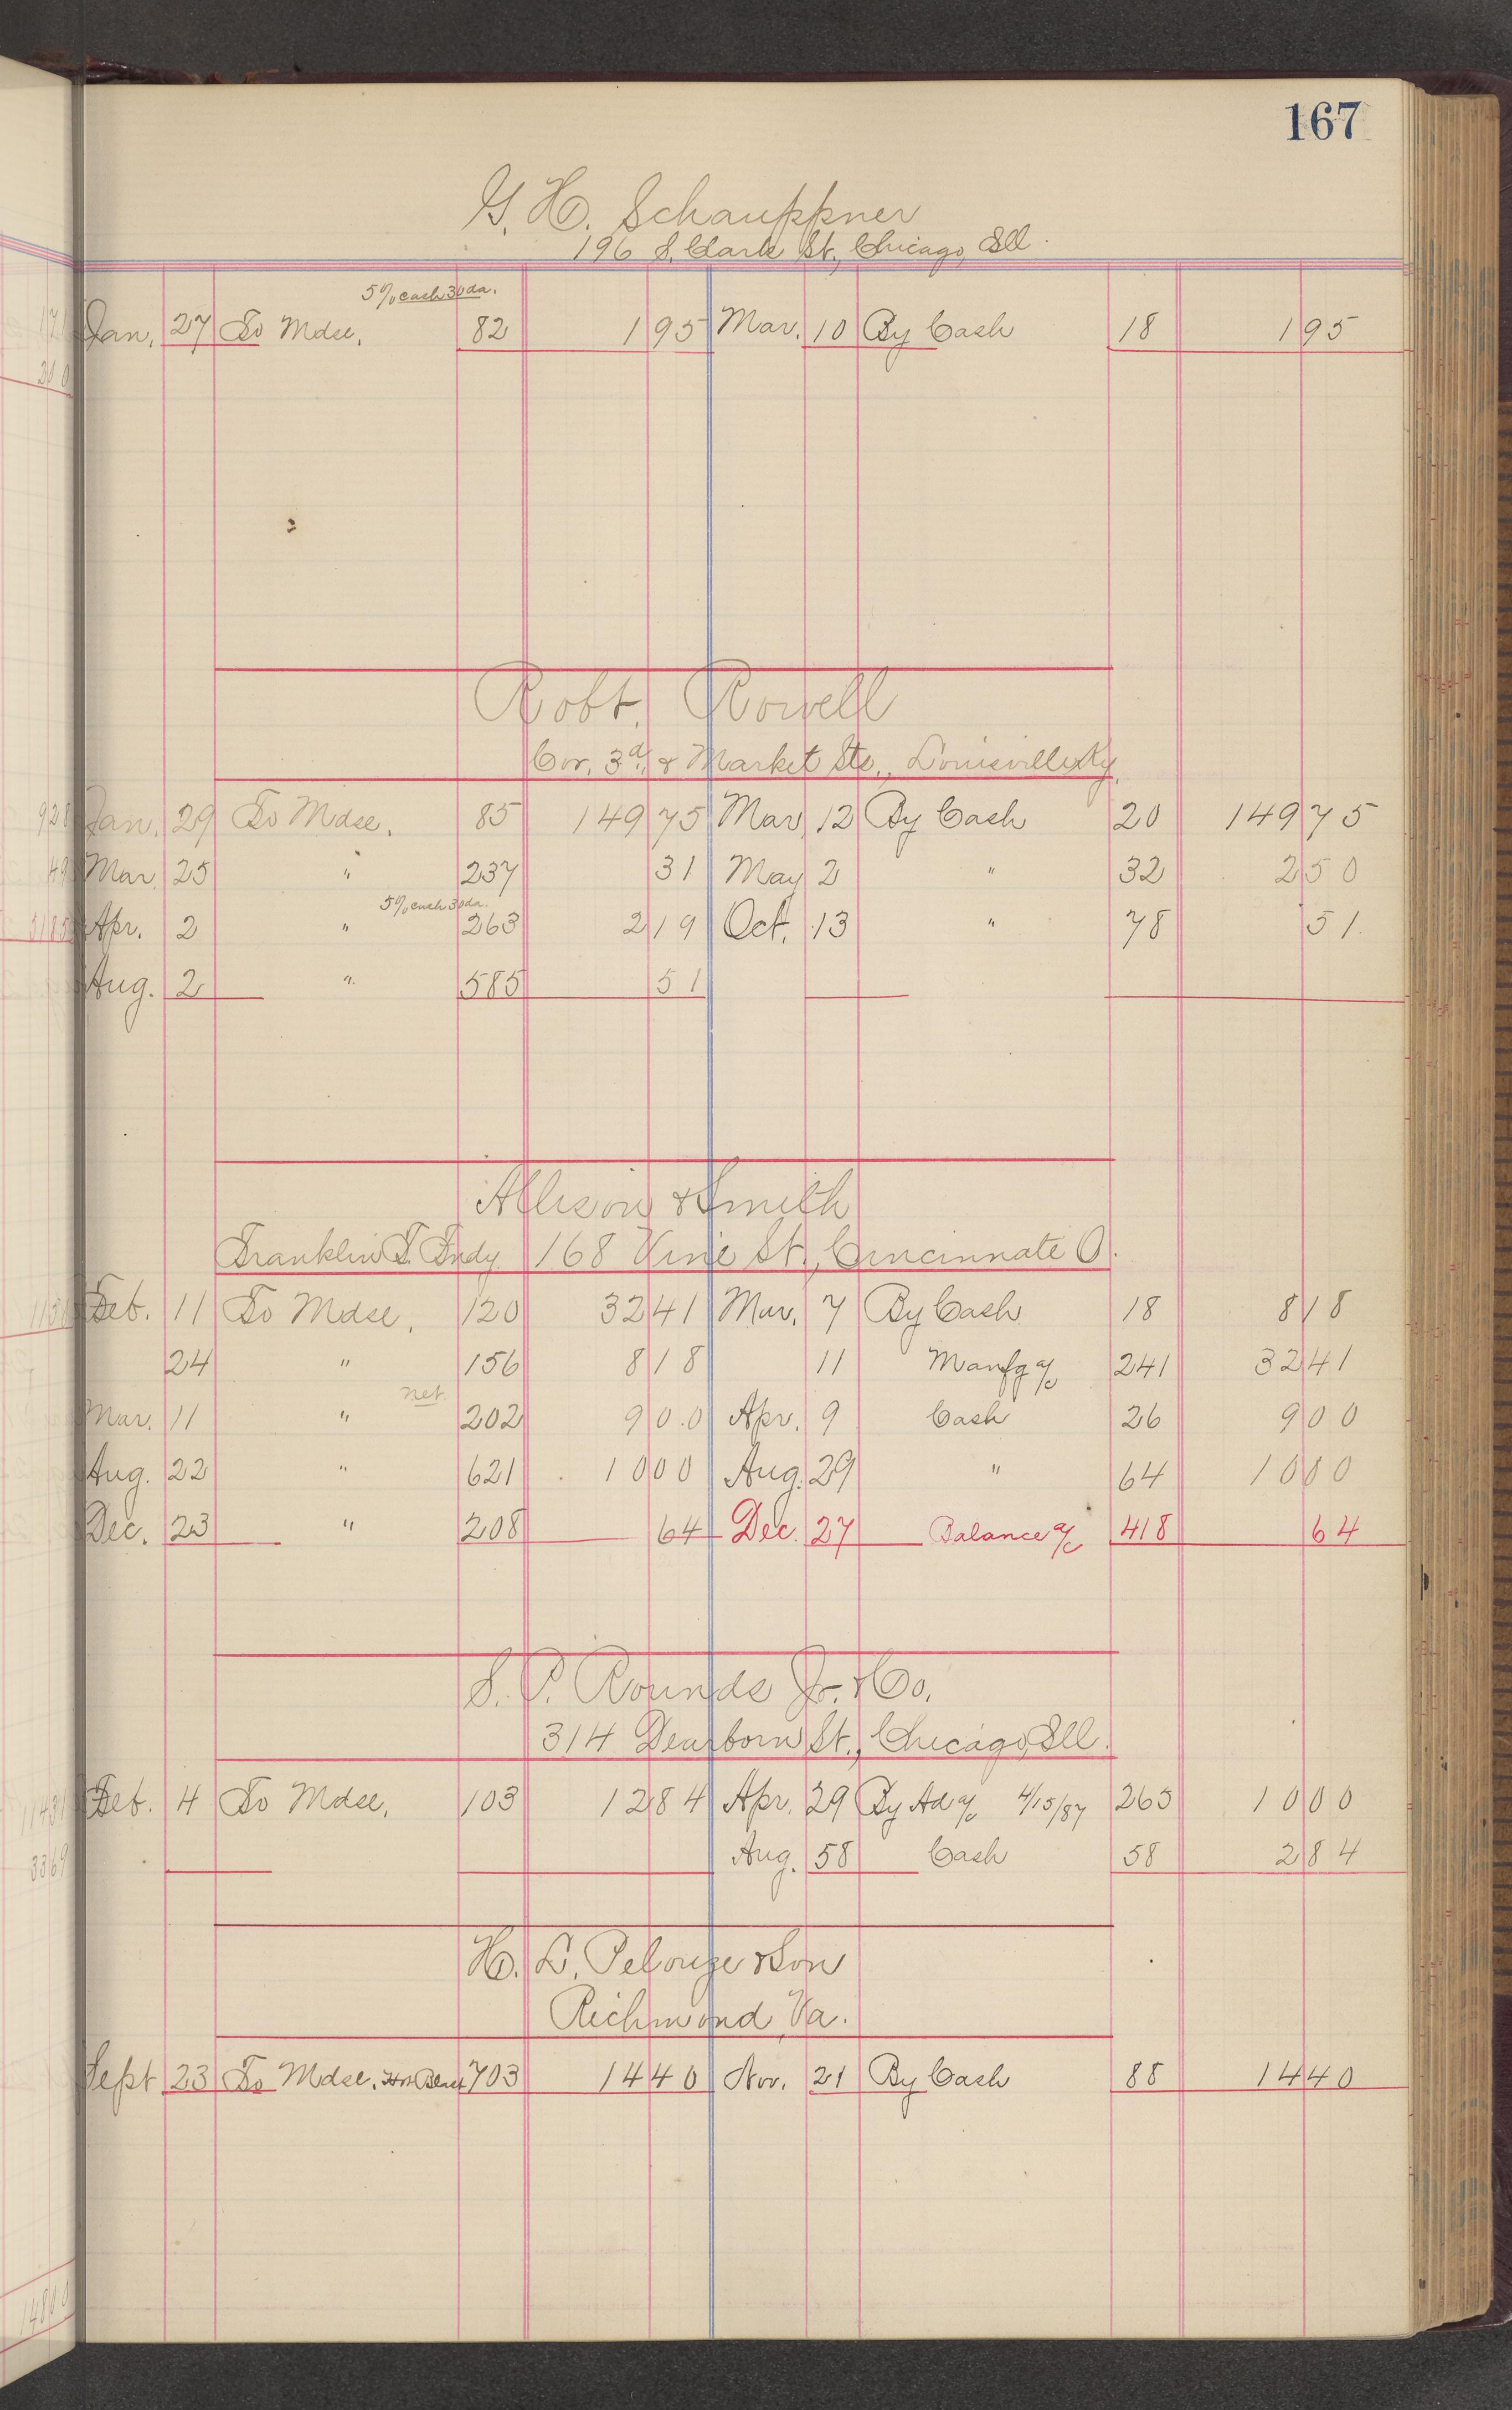 167
G. H. Schauppner
196 S. Clark St., Chicago, Ill.
5% cash 30 da.
Jan. 27 To Mdse. 82 1 95 Mar. 10 By Cash 18 1 95
Robt. Rowell
Cor. 3d & Market Sts., Louisville, Ky.
Jan. 29 To Mdse. 85 149 75 Mar. 12 By Cash 20 149 75
Mar. 25 " 237 31 May 2 " 32 2 50
5% cash 30 da.
Apr. 2 " 263 2 19 Oct. 13 " 78 51
Aug. 2 " 585 51
Allison & Smith
Franklin T. Fndy. 168 Vine St., Cincinnate O.
Feb. 11 To Mdse. 120 32 41 Mar. 7 By Cash 18 8 18
24 " 156 8 18 11 Manfg a/c 241 32 41
net
Mar. 11 " 202 9 00 Apr. 9 Cash 26 9 00
Aug. 22 " 621 10 00 Aug. 29 " 64 10 00
Dec. 23 " 208 64 Dec. 27 Balance a/c 418 64
S. P. Rounds Jr. & Co.
314 Dearborn St., Chicago, Ill.
Feb. 4 To Mdse. 103 12 84 Apr. 29 By Ad a/c 4/15/87 265 10 00
Aug. 58 Cash 58 2 84
H. L. Pelouze & Son
Richmond, Va.
Sept 23 To Mdse. 703 14 40 Nov. 21 By Cash 88 14 40